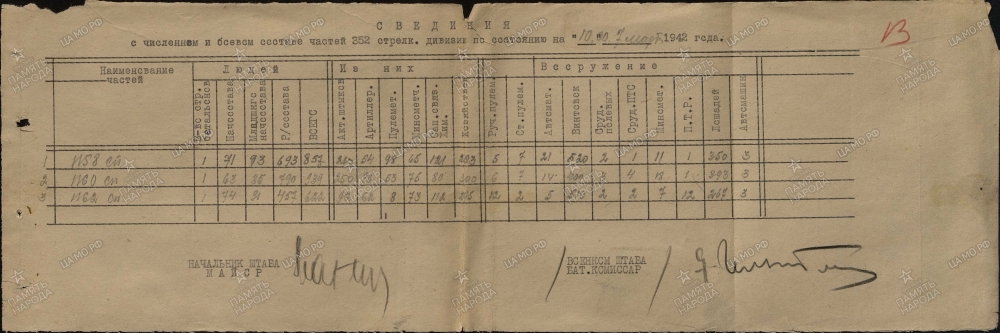 СВЕДЕНИЯ
о численном и боевом составе частей 352 стрелк. дивизии по состоянию на "10.00 7 март 1942 года.
В
Наименование частей
Людей
Из них
Вооружение
К-во стр. батальонов
Начсостава
Младшего начсостава
Р/состава
ВСЕГО
Акт.штыков
Артиллер.
Пулемет.
Минометч.
Хозяйствен
Руч.пулем.
Ст.пулем.
Автомат.
Винтовок
Оруд. полевых
Оруд.ПТО
Миномет.
П.Т.Р.
Лошадей
Автомашин
1 1158 сп. 1 71 93 693 857 54 98 65 121 283 5 7 21 520 2 1 11 1 350 3
2 1160 сп. 1 63 85 790 53 75 80 300 6 7 14 4 18 1 293 3
3 1162 сп. 1 74 91 457 622 92 62 8 73 112 12 2 5 2 2 7 12 3
НАЧАЛЬНИК ШТАБА
МАЙОР
ВОЕНКОМ ШТАБА
БАТ.КОМИССАР
ЦАМО.РФ
ПАМЯТЬ НАРОДА